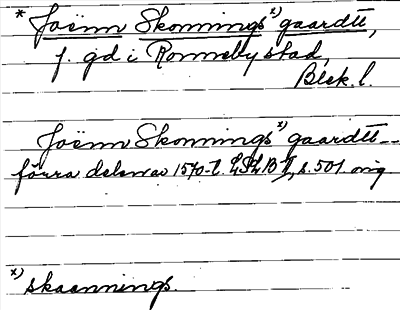 * Joënn Skonnings x) gaardtt,
f. gd i Ronneby stad,
Blek. l.
Joënn Skonnings x) gaardtt --
förra delen av 1570-t. LSLB I, s. 501. orig
x) skaennings